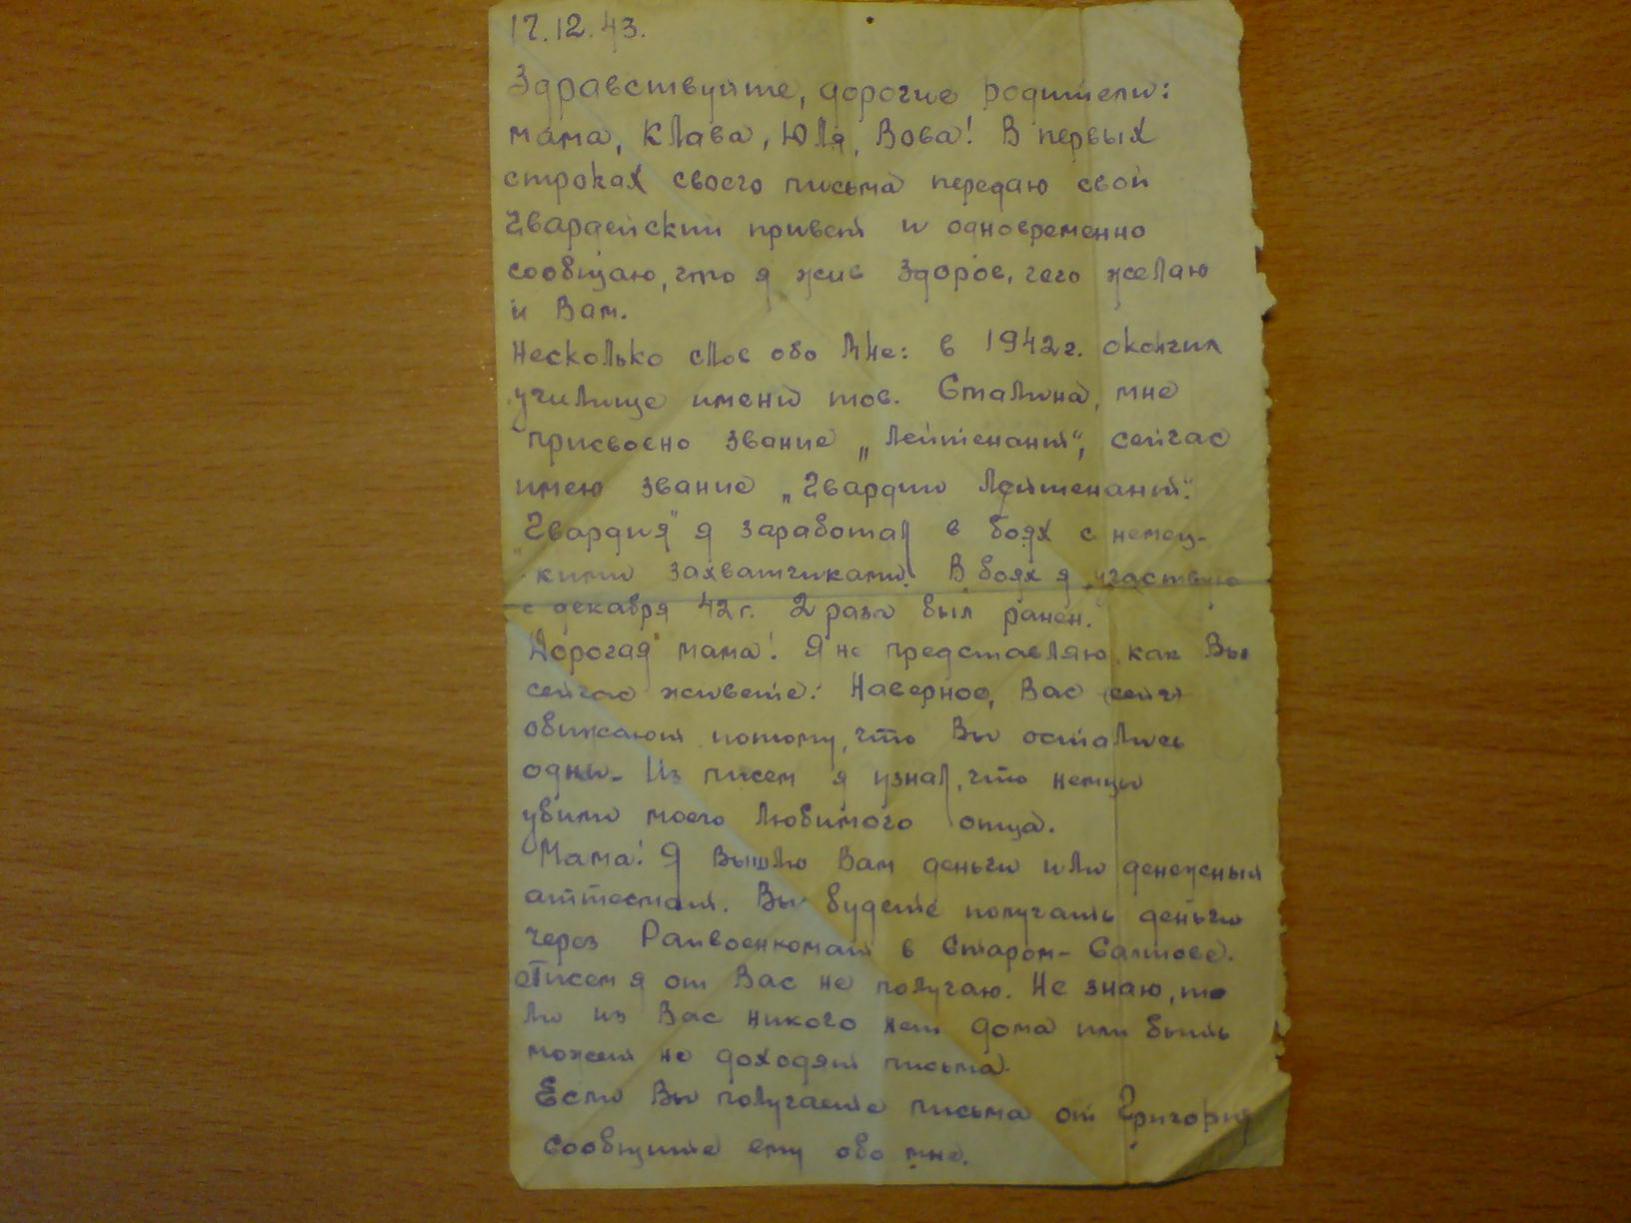 17.12.43.
Здравствуйте, дорогие родители:
мама, Клава, Юля, Вова! В первых
строках своего письма передаю свой
гвардейский привет и одновременно
сообщаю, что я жив здоров, чего желаю
и Вам.
Несколько слов обо мне: в 1942г. окончил
училище имени тов. Сталина, мне
присвоено звание „Лейтенант“, сейчас
имею звание „Гвардии Лейтенант“.
„Гвардия“ я заработал в боях с немец-
кими захватчиками. В боях я участвую
с декабря 42г. 2 раза был ранен.
Дорогая мама! Я не представляю, как Вы
сейчас живете: Наверное, Вас
обижают потому, что Вы остались
одни. Из писем я узнал, что немцы
убили моего любимого отца.
Мама! Я вышлю Вам деньги или денежный
аттестат. Вы будете получать деньги
через Райвоенкомат в Старом-Салтове.
Писем я от Вас не получаю. Не знаю, то
ли из Вас никого нет дома или быть
может не доходят письма.
Если Вы получаете письма от Григория
сообщите ему обо мне.